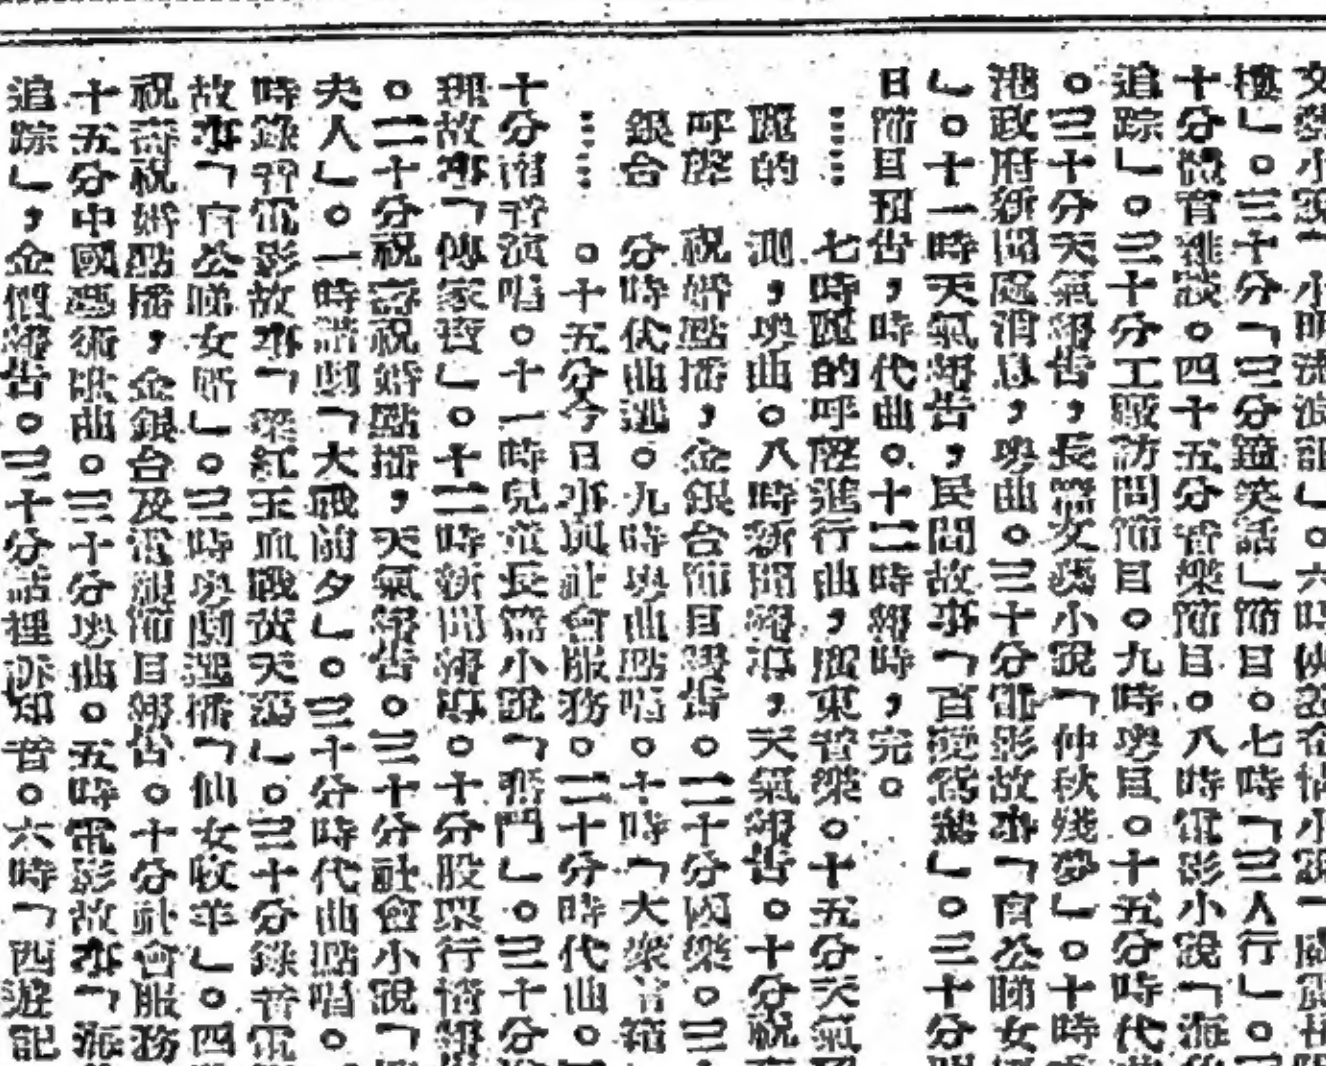 文藝小說「小明流浪記」。六時
樓」。三十分「三分鐘笑話」節目。七時「三人行」。
十分體育雜談。四十五分音樂節目。八時電影小說「海
追踪」。三十分工廠訪問節目。九時粵曲。十五分時代
。三十分天氣報告，長篇文藝小說「仲秋殘夢」。十時
港政府新聞處消息，粵曲。三十分電影故事「官公睇女
」。十一時天氣報告，民間故事「百變鴛鴦」。三十分
日節目預告，時代曲。十二時報時，完。
七時麗的呼聲進行曲，廣東音樂。十五分天氣
麗的 測，粵曲。八時新聞報導，天氣報告。十分祝
呼聲 祝婚點播，金銀台節目報告。二十分國樂。三
銀台 分時代曲選。九時粵曲點唱。十時「大眾音箱
。十五分今日事與社會服務。二十分時代曲。
十分諧音演唱。十一時兒童長篇小說「奮鬥」。三十分
理故事「傳家寶」。十二時新聞報導。十分股票行情報
。二十分祝壽祝婚點播，天氣報告。三十分社會小說「
夫人」。一時諧劇「大戰前夕」。三十分時代曲點唱。
時錄音電影故事「梁紅玉血戰黃天蕩」。三十分錄音電
故事「官公睇女婿」。三時粵劇選播「仙女牧羊」。四
祝壽祝婚點播，金銀台及電視節目報告。十分社會服務
十五分中國藝術歌曲。三十分粵曲。五時電影故事「
追踪」，金價報告。三十分話裡訴知音。六時「西遊記